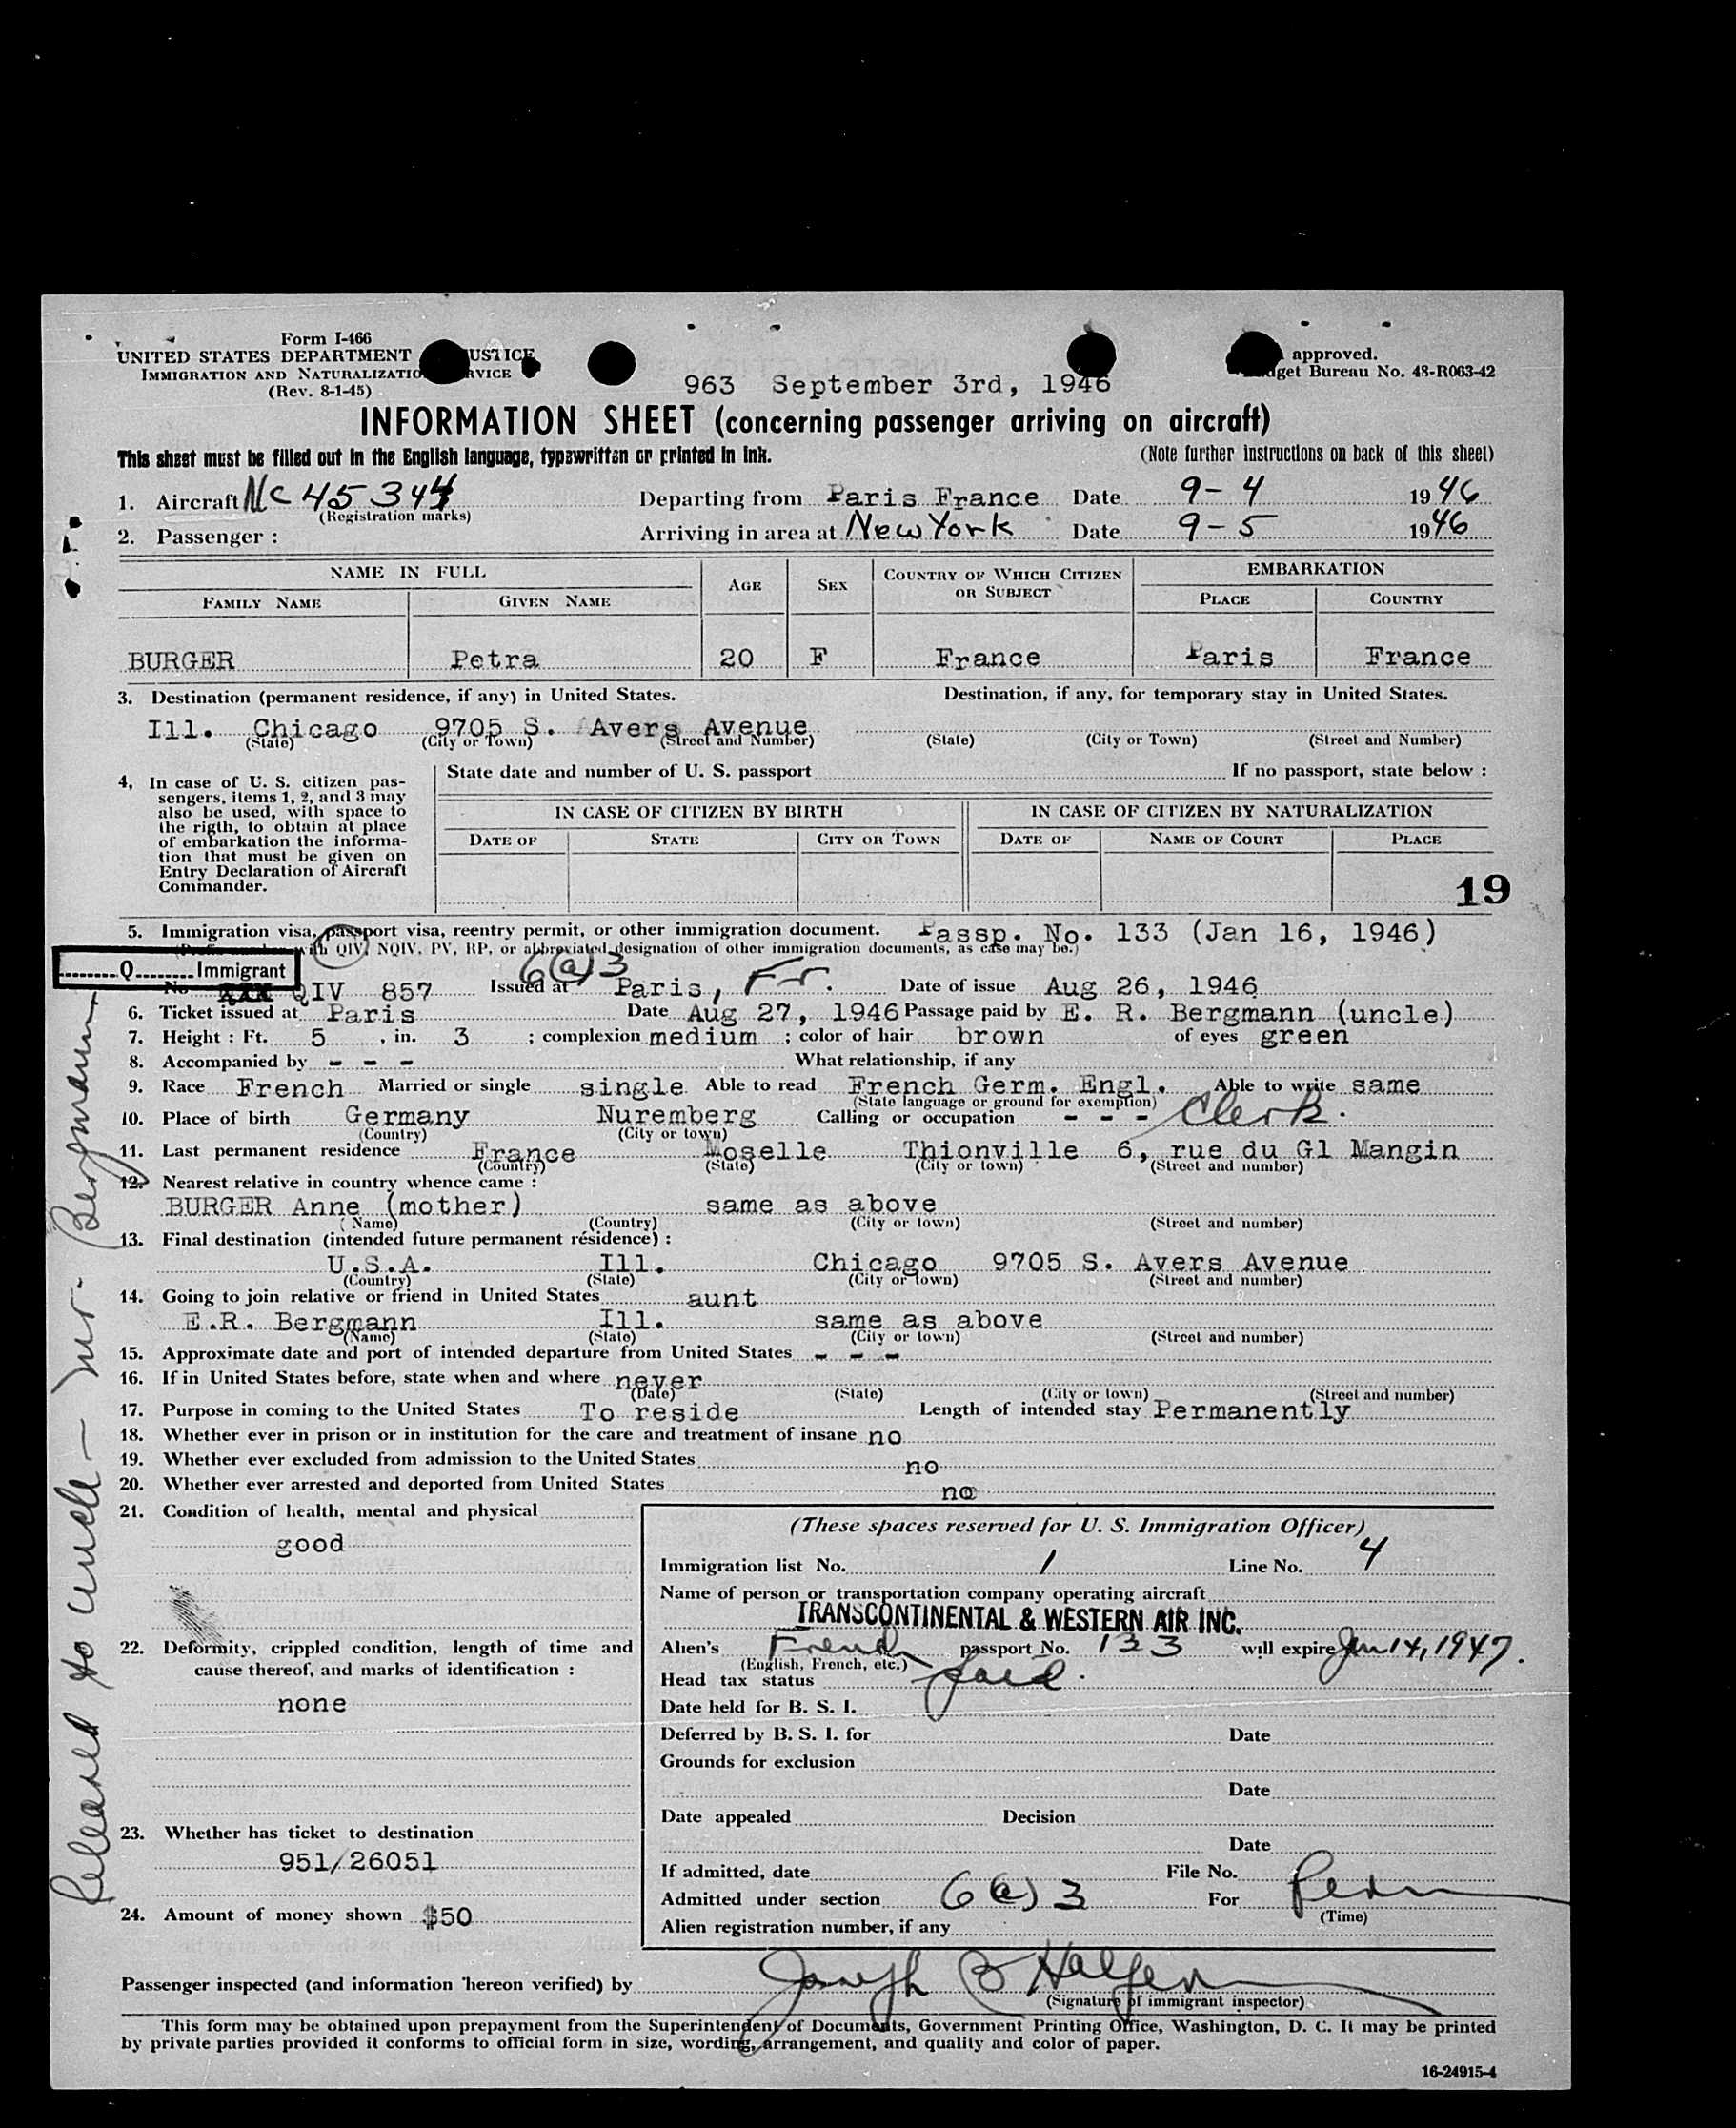 Form I-466
UNITED STATES DEPARTMENT USTICE
IMMIGRATION AND NATURALIZATIO RVICE
(Rev. 8-1-45)
approved.
get Bureau No. 43-R063-42
963 September 3rd, 1946
INFORMATION SHEET (concerning passenger arriving on aircraft)
This sheet must be filled out in the English language, typewritten or printed in ink. (Note further instructions on back of this sheet)
1. Aircraft NC 45344 Departing from Paris France Date 9-4 1946
(Registration marks)
2. Passenger : Arriving in area at New York Date 9-5 1946
NAME IN FULL AGE SEX COUNTRY OF WHICH CITIZEN OR SUBJECT EMBARKATION
FAMILY NAME GIVEN NAME PLACE COUNTRY
BURGER Petra 20 F France Paris France
3. Destination (permanent residence, if any) in United States. Destination, if any, for temporary stay in United States.
Ill. Chicago 9705 S. Avers Avenue
(State) (City or Town) (Street and Number) (State) (City or Town) (Street and Number)
4, In case of U. S. citizen pas-
sengers, items 1, 2, and 3 may
also be used, with space to
the rigth, to obtain at place
of embarkation the informa-
tion that must be given on
Entry Declaration of Aircraft
Commander.
State date and number of U. S. passport If no passport, state below :
IN CASE OF CITIZEN BY BIRTH IN CASE OF CITIZEN BY NATURALIZATION
DATE OF STATE CITY OR TOWN DATE OF NAME OF COURT PLACE
19
5. Immigration visa, passport visa, reentry permit, or other immigration document. Passp. No. 133 (Jan 16, 1946)
QIV, NQIV, PV, RP, or abbreviated designation of other immigration documents, as case may be.)
Q Immigrant
6(a)3
No XXX QIV 857 Issued at Paris, Fr. Date of issue Aug 26, 1946
6. Ticket issued at Paris Date Aug 27, 1946 Passage paid by E. R. Bergmann (uncle)
7. Height : Ft. 5 , in. 3 ; complexion medium ; color of hair brown of eyes green
8. Accompanied by - - - What relationship, if any
9. Race French Married or single single Able to read French Germ. Engl. Able to write same
(State language or ground for exemption)
10. Place of birth Germany Nuremberg Calling or occupation - - - Clerk.
(Country) (City or town)
11. Last permanent residence France Moselle Thionville 6, rue du Gl Mangin
(Country) (State) (City or town) (Street and number)
12. Nearest relative in country whence came :
BURGER Anne (mother) same as above
(Name) (Country) (City or town) (Street and number)
13. Final destination (intended future permanent résidence) :
U.S.A. Ill. Chicago 9705 S. Avers Avenue
(Country) (State) (City or town) (Street and number)
14. Going to join relative or friend in United States aunt
E.R. Bergmann Ill. same as above
(Name) (State) (City or town) (Street and number)
15. Approximate date and port of intended departure from United States - - -
16. If in United States before, state when and where never
(Date) (State) (City or town) (Street and number)
17. Purpose in coming to the United States To reside Length of intended stay Permanently
18. Whether ever in prison or in institution for the care and treatment of insane no
19. Whether ever excluded from admission to the United States no
20. Whether ever arrested and deported from United States no
21. Condition of health, mental and physical
good
22. Deformity, crippled condition, length of time and
cause thereof, and marks of identification :
none
23. Whether has ticket to destination
951/26051
24. Amount of money shown $50
(These spaces reserved for U. S. Immigration Officer)
Immigration list No. 1 Line No. 4
Name of person or transportation company operating aircraft
TRANSCONTINENTAL & WESTERN AIR INC.
Alien's French passport No. 133 will expire Jan 14, 1947.
(English, French, etc.)
Head tax status paid.
Date held for B. S. I.
Deferred by B. S. I. for Date
Grounds for exclusion
Date
Date appealed Decision
Date
If admitted, date File No.
Admitted under section 6(a)3 For Perm
(Time)
Alien registration number, if any
Passenger inspected (and information hereon verified) by Joseph B Halpern
(Signature of immigrant inspector)
This form may be obtained upon prepayment from the Superintendent of Documents, Government Printing Office, Washington, D. C. It may be printed
by private parties provided it conforms to official form in size, wording, arrangement, and quality and color of paper.
16-24915-4
Released to uncle - Mr. Bergmann